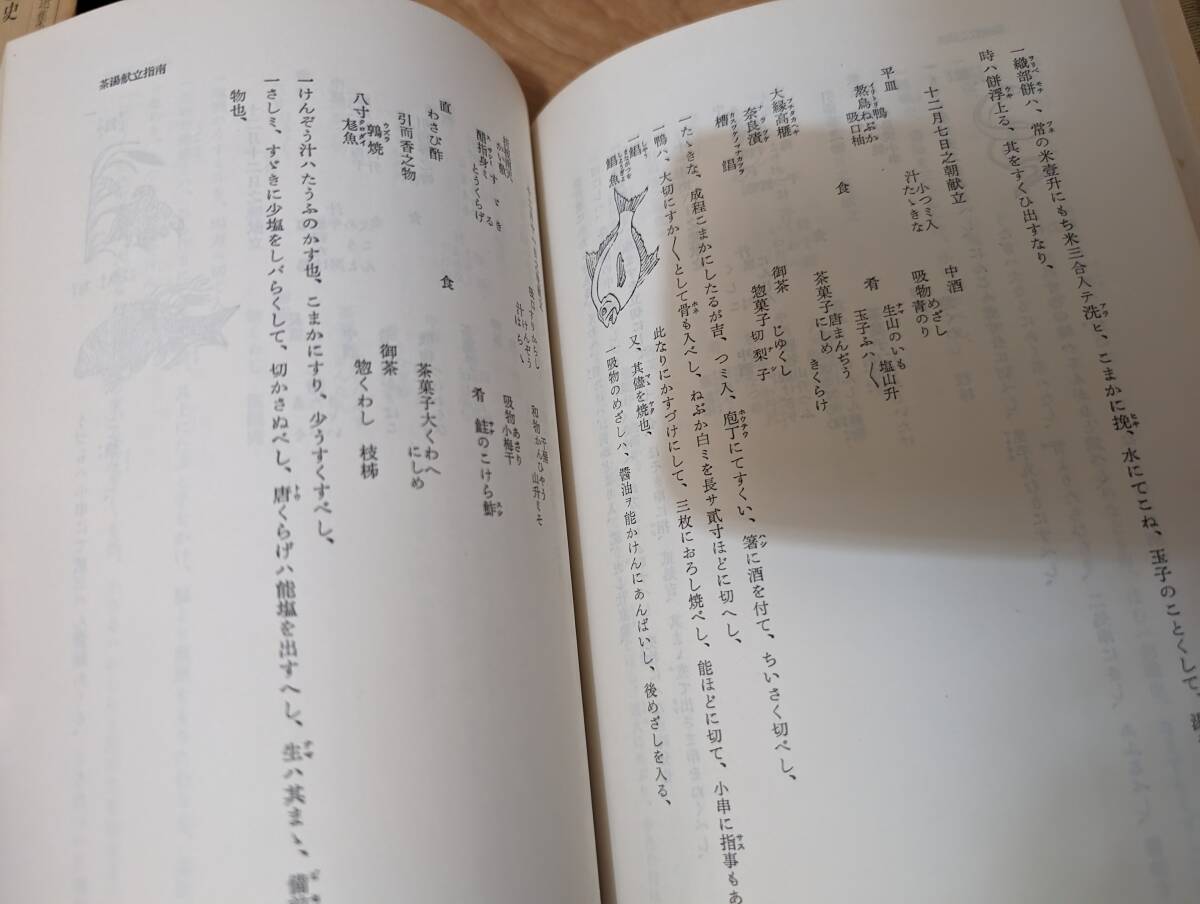 一織部餅ハ、常の米壹升にもち米三合入テ洗ヒ、こまかに挽、水にてこね、玉子のことくして、湯
時ハ餅浮上る、其をすくひ出すなり、
十二月七日之朝献立
汁 小つミ入 たゝきな
平皿 熬鳥 鴨 ねぶか 吸口柚
食
大縁高榧 奈良漬
槽 鯧
中酒
吸物 めざし 青のり
肴 生山のいも 塩山升 玉子ふハ〳〵
茶菓子 唐まんぢう にしめ きくらけ
御茶
惣菓子 じゆくし 切梨子
一たゝきな、成程こまかにしたるが吉、つミ入、庖丁にてすくい、箸に酒を付て、ちいさく切べし、
一鴨ハ、大切にすか〳〵として骨も入べし、ねぶか白ミを長サ貳寸ほどに切へし、
一鯧
此なりにかすづけにして、三枚におろし焼べし、能ほどに切て、小串に指事もあ
鯧魚
又、其儘を焼也、
一吸物のめざしハ、醤油ヲ能かけんにあんばいし、後めざしを入る、
茶湯献立指南
すゞき
かい敷
醋指身 とうくらげ
直 わさび酢
引而香之物
八寸 鶉焼 尨魚
食
吸口すりからし
汁 けんぞう はらゝ
和物 かんひやう 山升ミそ
吸物 あさり 小梅干
肴 鮭のこけら鮓
茶菓子 大くわへ にしめ
御茶
惣くわし 枝柿
一けんぞう汁ハたうふのかす也、こまかにすり、少うすくすべし、
一さしミ、すゞきに少塩をしバらくして、切かさぬべし、唐くらげハ能塩を出すへし、生ハ其まゝ、備前
物也、